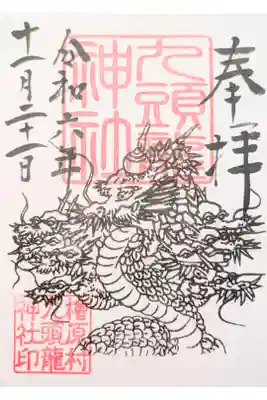 奉拝
九頭龍
神社
令和六年
十一月二十一日
檜原村
九頭龍
神社印